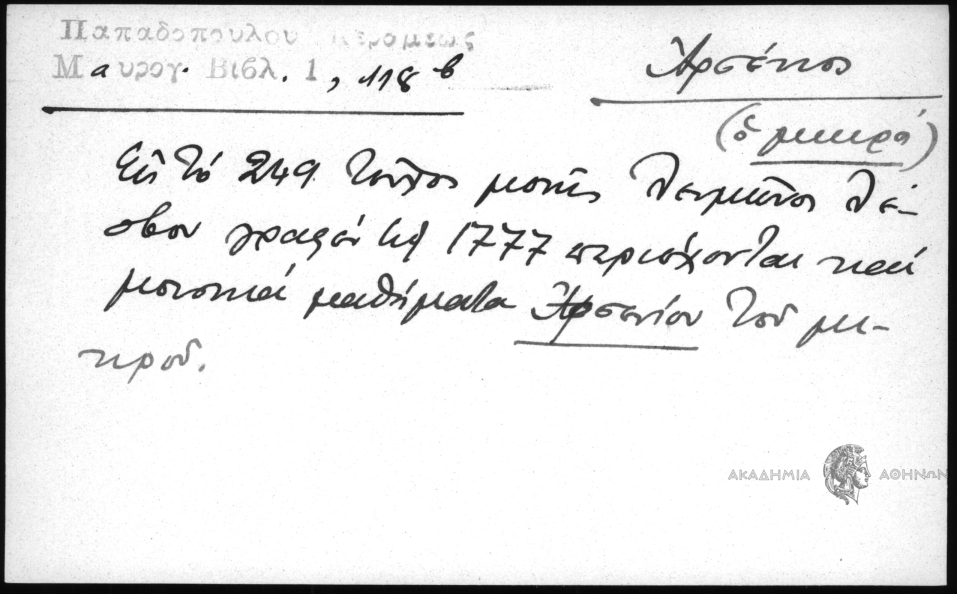 Παπαδοπούλου Κεραμέως
Μαυρογ. Βιβλ. 1, 118 β
Ἀρσένιος
(ὁ μικρὸς)
Εἰς τὸ 249 μονῆς Λειμῶνος Λέ-
σβου γραφὲν τῷ 1777 περιέχονται καὶ
μουσικὰ μαθήματα Ἀρσενίου τοῦ μι-
κροῦ.
ΑΚΑΔΗΜΙΑ ΑΘΗΝΩΝ